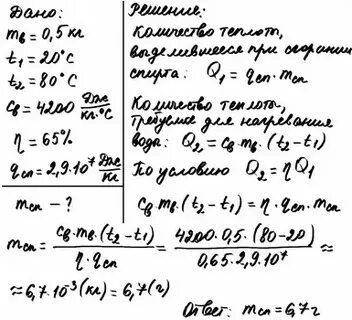 Дано:
mв = 0,5 кг
t₁ = 20°C
t₂ = 80°C
cв = 4200 Дж/кг·°C
η = 65%
qсп = 2,9·10⁷ Дж/кг
mсп – ?
Решение:
Количество теплоты,
выделившееся при сгорании
спирта: Q₁ = qсп · mсп
Количество теплоты,
требуемое для нагревания
вода: Q₂ = cв mв (t₂ – t₁)
По условию Q₂ = ηQ₁
cв mв · (t₂ – t₁) = η · qсп · mсп
mсп = cв · mв · (t₂ – t₁) / η · qсп = 4200 · 0,5 · (80 – 20) / 0,65 · 2,9 · 10⁷ ≈
≈ 6,7 · 10⁻³ (кг) = 6,7 (г)
Ответ: mсп = 6,7 г